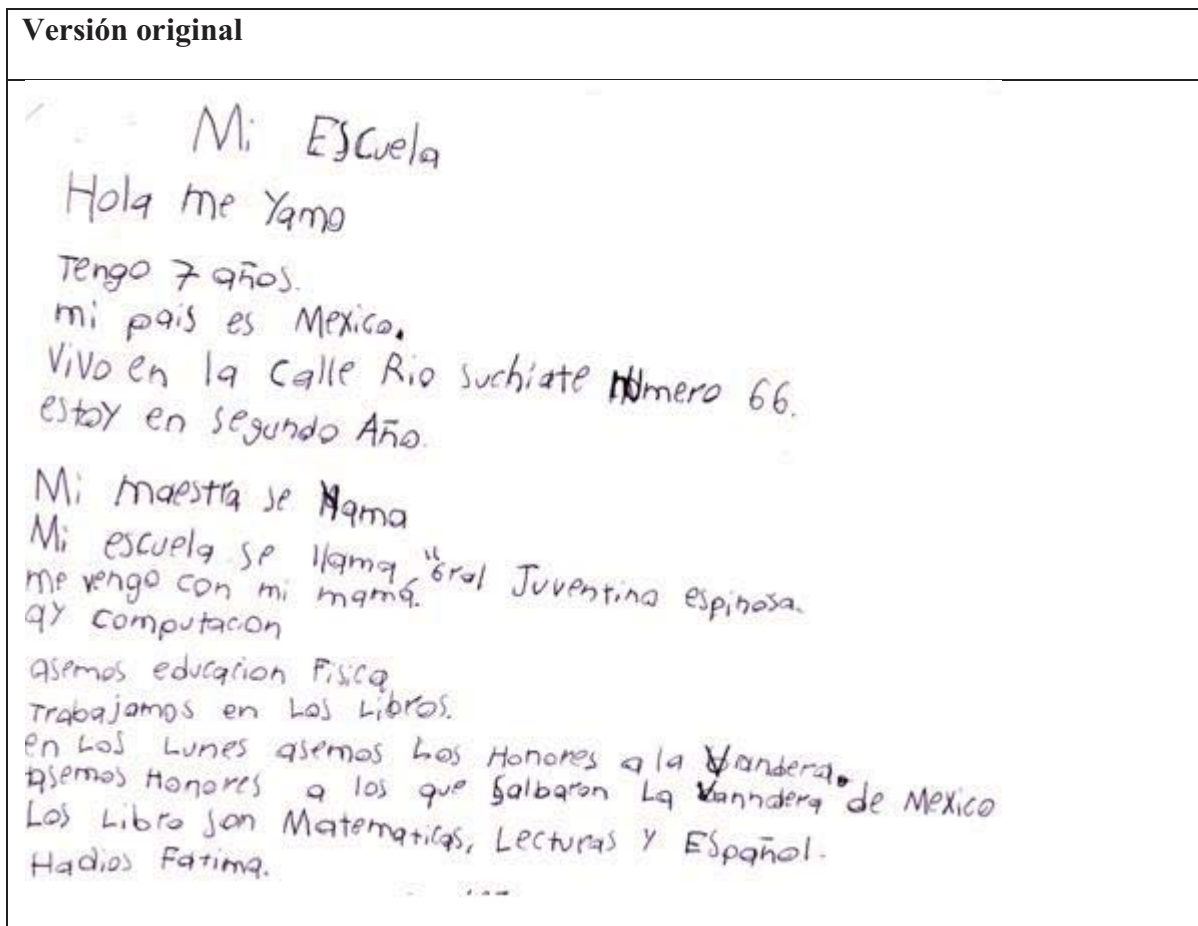 Versión original
Mi Escuela
Hola me Yamo
Tengo 7 años.
mi pais es Mexico.
Vivo en la calle Rio Suchiate numero 66.
estoy en segundo Año.
Mi maestra se llama
Mi escuela se llama "Gral Juventino espinosa.
me vengo con mi mamá.
ay computacion
asemos educacion Fisica
Trabajamos en Los Libros.
en Los Lunes asemos Los Honores a la Vandera.
asemos Honores a los que salbaron La Vanndera de Mexico
Los Libro son Matematicas, Lecturas y Español.
Hadios Fatima.